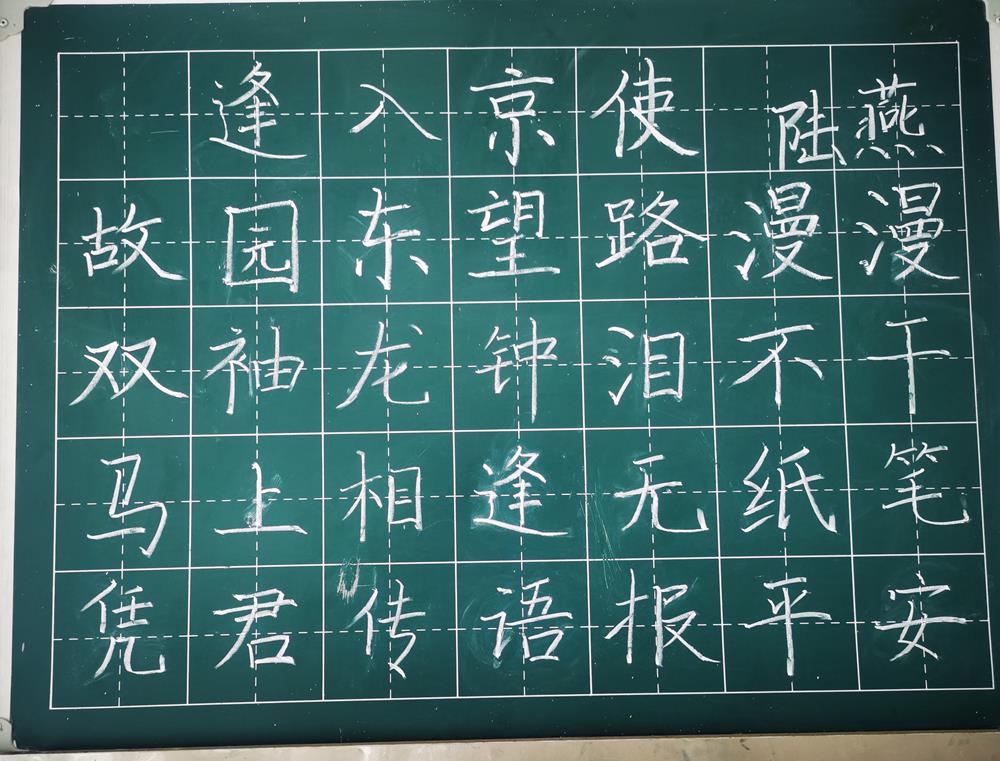 逢入京使 陆燕
故园东望路漫漫
双袖龙钟泪不干
马上相逢无纸笔
凭君传语报平安